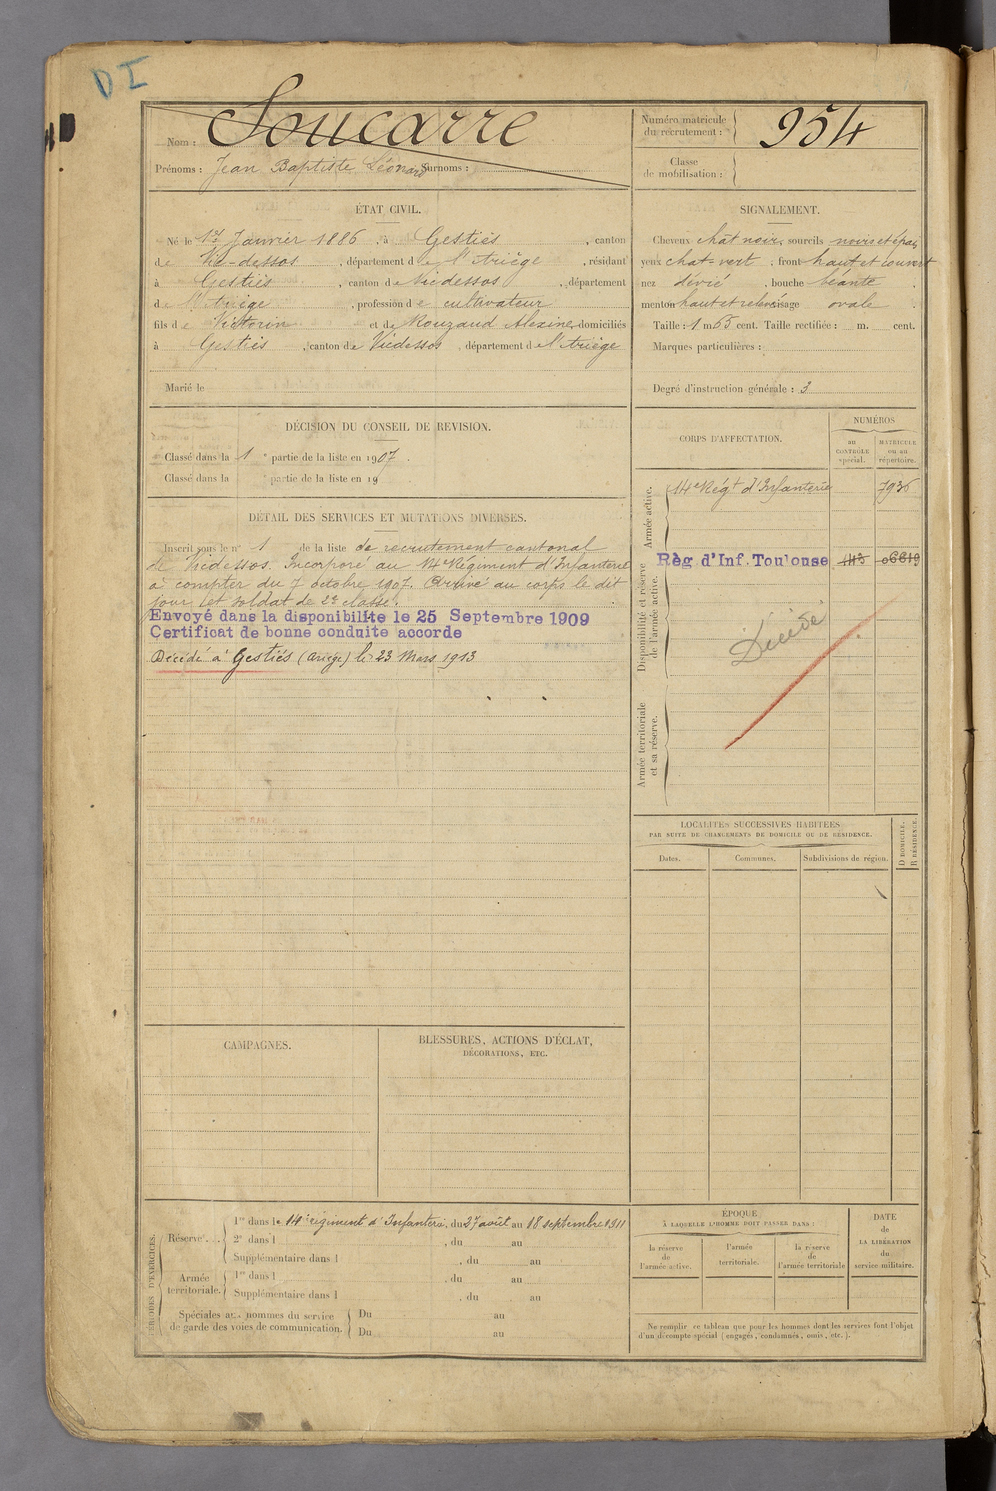 DI
Nom : Soucarre
Prénoms : Jean Baptiste Léonard Surnoms :
Numéro matricule du recrutement : 954
Classe de mobilisation :
ÉTAT CIVIL.
Né le 1er Janvier 1886, à Gestiès, canton
de Vic-dessos, département de l'Ariège, résidant
à Gestiès, canton de Vicdessos, département
de l'Ariège, profession de cultivateur
fils de Victorin et de Rouzaud Alexine, domiciliés
à Gestiès, canton de Vicdessos, département de l'Ariège
Marié le
SIGNALEMENT.
Cheveux chât noir, sourcils noirs et épais,
yeux chat-vert ; front haut et couvert
nez dévié, bouche béante ;
menton haut et relevé visage ovale
Taille : 1 m 65 cent. Taille rectifiée : m. cent.
Marques particulières :
Degré d'instruction générale : 3
DÉCISION DU CONSEIL DE REVISION.
Classé dans la 1e partie de la liste en 1907.
Classé dans la e partie de la liste en 19
DÉTAIL DES SERVICES ET MUTATIONS DIVERSES.
Inscrit sous le n° 1 de la liste de recrutement cantonal
de Vicdessos. Incorporé au 14e Régiment d'Infanterie
à compter du 7 octobre 1907. Arrivé au corps le dit
jour et soldat de 2e classe.
Envoyé dans la disponibilite le 25 Septembre 1909
Certificat de bonne conduite accorde
Décédé à Gestiès (Ariège) le 23 Mars 1913
CORPS D'AFFECTATION.
NUMÉROS
au CONTRÔLE spécial.
MATRICULE ou au répertoire.
Armée active.
14e Régt d'Infanterie 7936
Disponibilité et réserve de l'armée active.
Règ d'Inf. Toulouse 06819
Décédé
Armée territoriale et sa réserve.
LOCALITÉS SUCCESSIVES HABITÉES
PAR SUITE DE CHANGEMENTS DE DOMICILE OU DE RÉSIDENCE.
Dates. Communes. Subdivisions de région. D DOMICILE. R RÉSIDENCE.
CAMPAGNES.
BLESSURES, ACTIONS D'ÉCLAT,
DÉCORATIONS, ETC.
PÉRIODES D'EXERCICES.
Réserve...
1re dans le 14e régiment d'Infanterie, du 27 août au 18 septembre 1911
2e dans l , du au
Supplémentaire dans l , du au
Armée territoriale.
1re dans l , du au
Supplémentaire dans l , du au
Spéciales aux hommes du service
de garde des voies de communication.
Du au
Du au
ÉPOQUE
À LAQUELLE L'HOMME DOIT PASSER DANS :
la réserve de l'armée active.
l'armée territoriale.
la réserve de l'armée territoriale
DATE de LA LIBÉRATION du service militaire.
Ne remplir ce tableau que pour les hommes dont les services font l'objet
d'un décompte spécial (engagés, condamnés, omis, etc.).